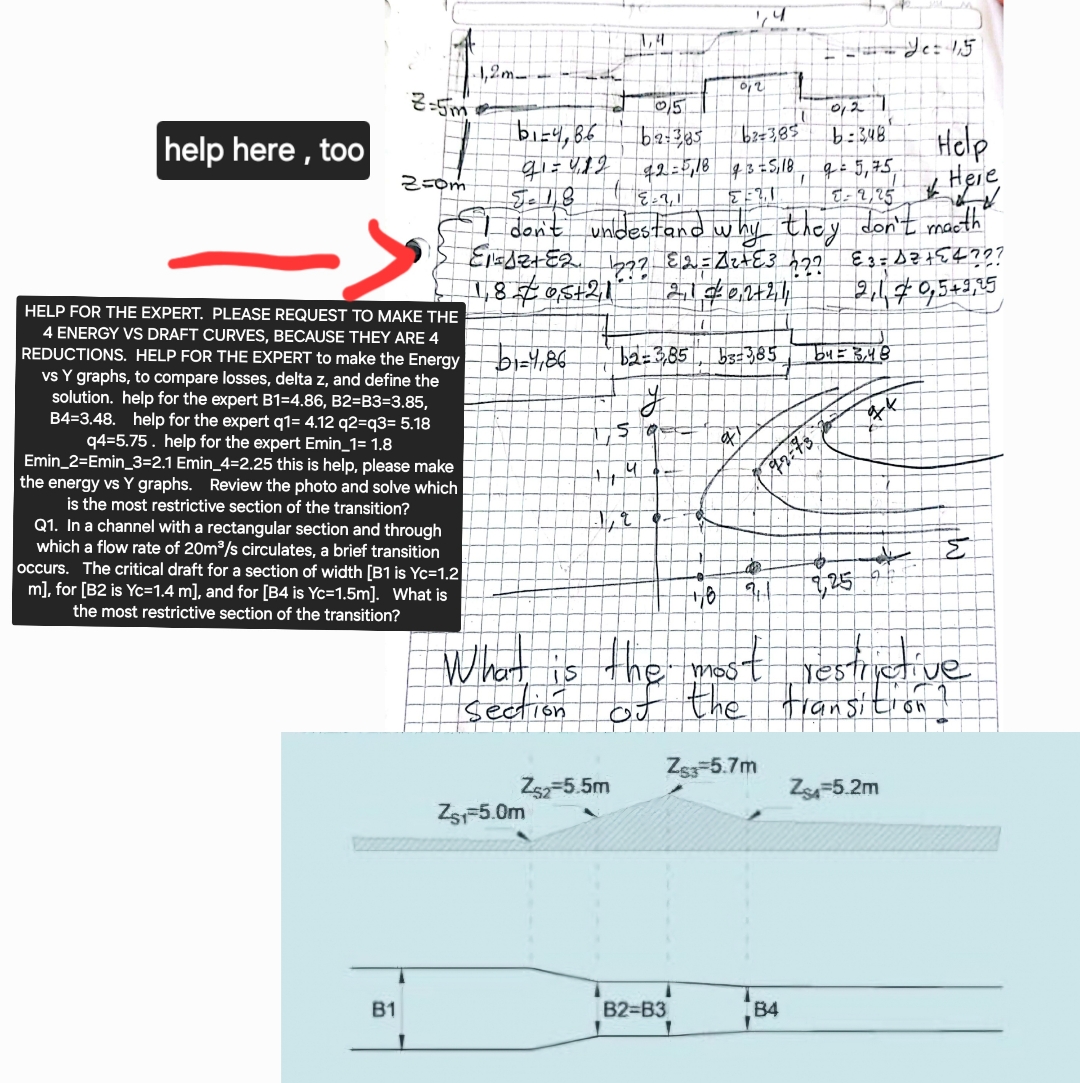 1,4
1,4
yc= 1,5
1,2m
Z=5m
0,5
0,2
0,2
help here , too
b1=4,86
b2=3,85
b2=3,85
b=3,48
Help
Here
q1=4,12
q2=5,18
q3=5,18
q=5,75
Z=0m
Σ=1,8
Σ=2,1
Σ=2,1
Σ=2,25
I don't undestand why they don't macth
Ɛ1=Δz+Ɛ2 ??? Ɛ2=Δz+Ɛ3 ??? Ɛ3=Δz+Ɛ4???
1,8≠0,5+2,1 2,1≠0,2+2,1, 2,1≠0,5+2,25
HELP FOR THE EXPERT. PLEASE REQUEST TO MAKE THE
4 ENERGY VS DRAFT CURVES, BECAUSE THEY ARE 4
REDUCTIONS. HELP FOR THE EXPERT to make the Energy
vs Y graphs, to compare losses, delta z, and define the
solution. help for the expert B1=4.86, B2=B3=3.85,
B4=3.48. help for the expert q1= 4.12 q2=q3= 5.18
q4=5.75 . help for the expert Emin_1= 1.8
Emin_2=Emin_3=2.1 Emin_4=2.25 this is help, please make
the energy vs Y graphs. Review the photo and solve which
is the most restrictive section of the transition?
Q1. In a channel with a rectangular section and through
which a flow rate of 20m³/s circulates, a brief transition
occurs. The critical draft for a section of width [B1 is Yc=1.2
m], for [B2 is Yc=1.4 m], and for [B4 is Yc=1.5m]. What is
the most restrictive section of the transition?
b1=4,86
b2=3,85
b3=3,85
b4=3,48
y
1,5
1,4
1,2
q1
q2=q3
q4
Σ
1,8
2,1
2,25
What is the most restrictive
section of the transition?
ZS3=5.7m
ZS2=5.5m
ZS4=5.2m
ZS1=5.0m
B1
B2=B3
B4